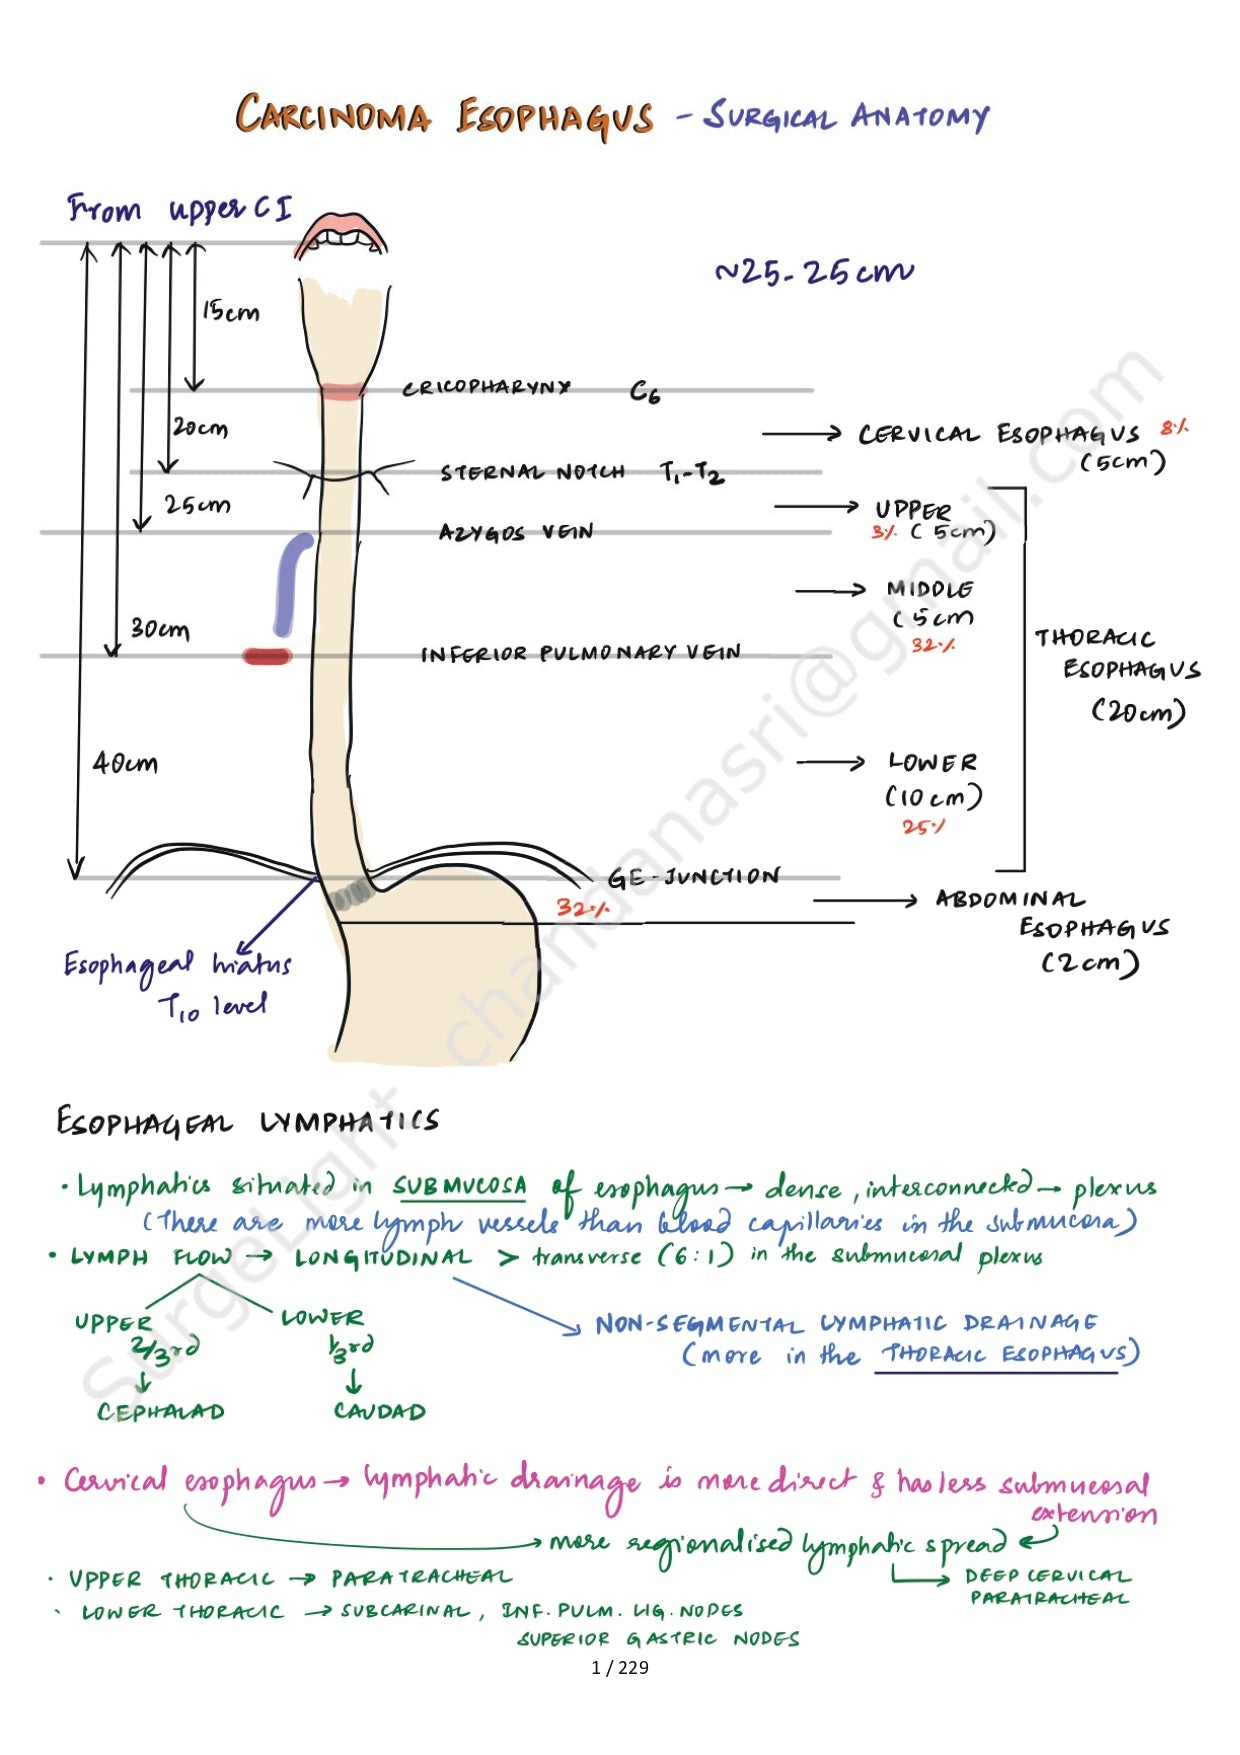 CARCINOMA ESOPHAGUS - SURGICAL ANATOMY
From upper CI
~25-25cm
15cm
CRICOPHARYNX C6
20cm
CERVICAL ESOPHAGUS 8%
(5cm)
STERNAL NOTCH T1-T2
25cm
UPPER
3% (5cm)
AZYGOS VEIN
MIDDLE
(5cm
32%
30cm
INFERIOR PULMONARY VEIN
THORACIC
ESOPHAGUS
(20cm)
40cm
LOWER
(10cm)
25%
GE-JUNCTION
32%
ABDOMINAL
ESOPHAGUS
(2cm)
Esophageal hiatus
T10 level
ESOPHAGEAL LYMPHATICS
• Lymphatics situated in SUBMUCOSA of esophagus → dense, interconnected → plexus
(There are more lymph vessels than blood capillaries in the submucosa)
• LYMPH FLOW → LONGITUDINAL > transverse (6:1) in the submucosal plexus
UPPER
2/3rd
↓
CEPHALAD
LOWER
1/3rd
↓
CAUDAD
NON-SEGMENTAL LYMPHATIC DRAINAGE
(more in the THORACIC ESOPHAGUS)
• Cervical esophagus → lymphatic drainage is more direct & has less submucosal
extension
→ more regionalised lymphatic spread
DEEP CERVICAL
PARATRACHEAL
• UPPER THORACIC → PARATRACHEAL
• LOWER THORACIC → SUBCARINAL, INF. PULM. LIG. NODES
SUPERIOR GASTRIC NODES
1 / 229
SurgeLight chandanasri@gmail.com